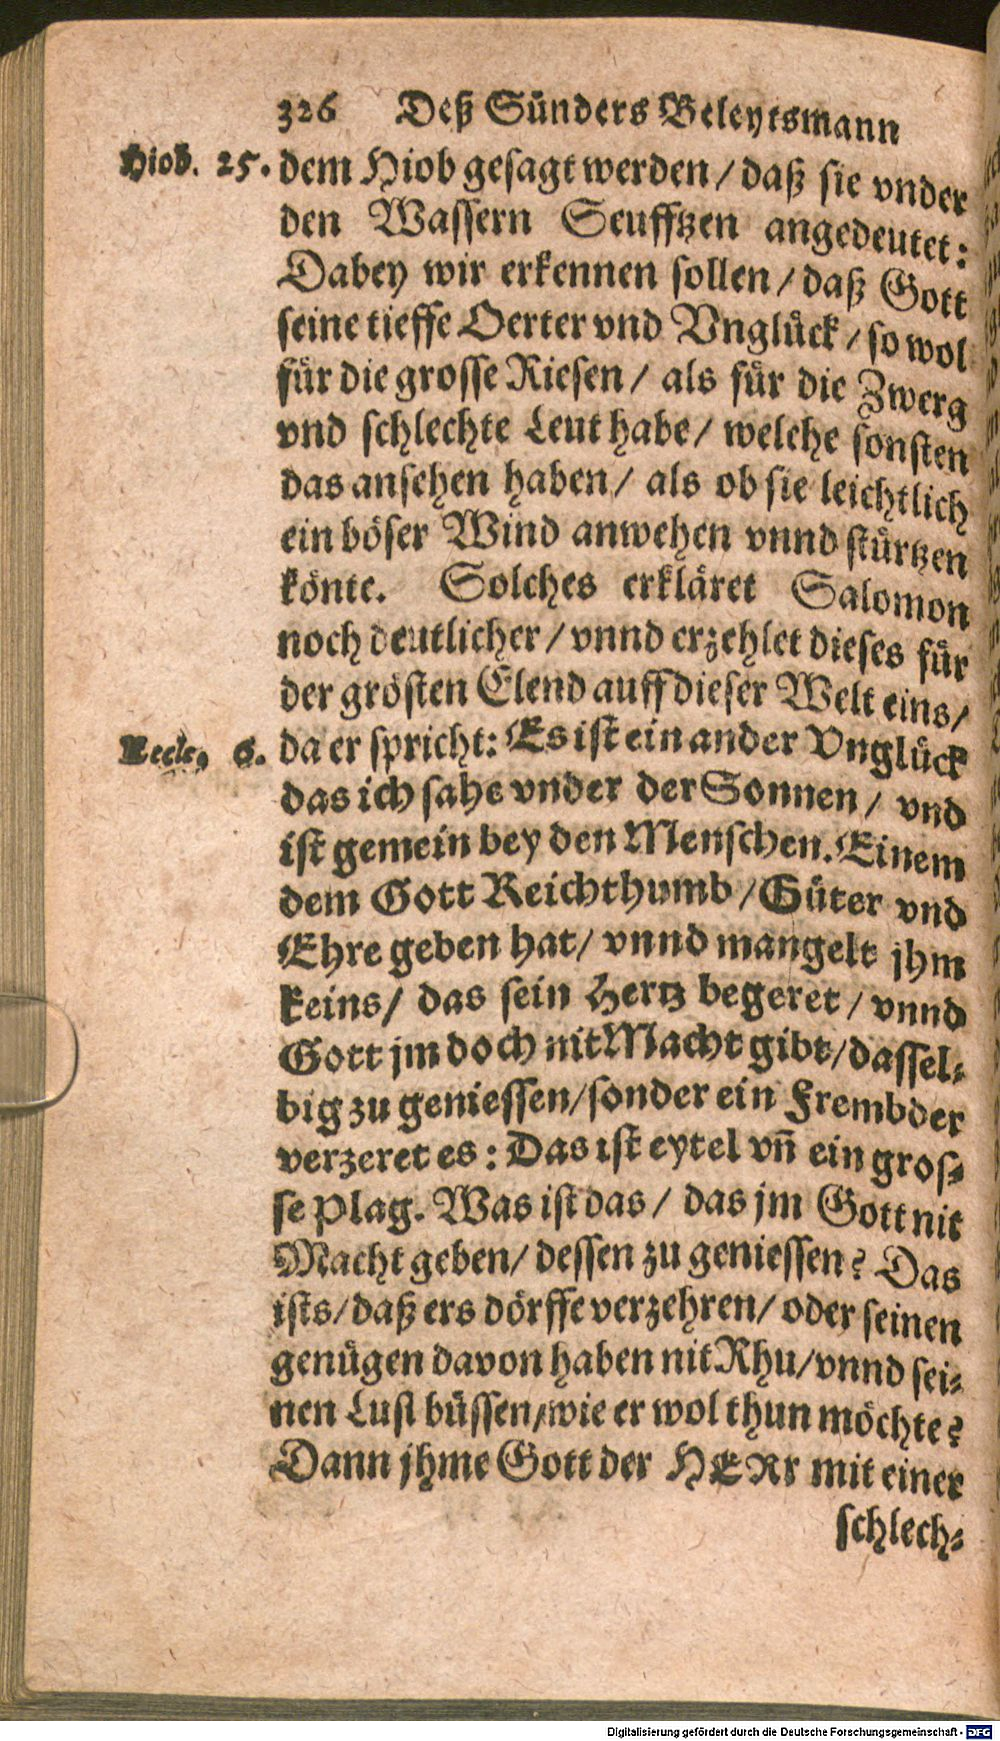 326 Deß Sünders Beleytsmann
Hiob. 25. dem Hiob gesagt werden / daß sie vnder
den Wassern Seufftzen angedeutet:
Dabey wir erkennen sollen / daß Gott
seine tieffe Oerter vnd Vnglück / so wol
für die grosse Riesen / als für die Zwerg
vnd schlechte Leut habe / welche sonsten
das ansehen haben / als ob sie leichtlich
ein böser Wind anwehen vnnd stürtzen
könte. Solches erkläret Salomon
noch deutlicher / vnnd erzehlet dieses für
der grösten Elend auff dieser Welt eins /
Eccle. 6. da er spricht: Es ist ein ander Vnglück
das ich sahe vnder der Sonnen / vnd
ist gemein bey den Menschen. Einem
dem Gott Reichthumb / Güter vnd
Ehre geben hat / vnnd mangelt jhm
keins / das sein Hertz begeret / vnnd
Gott jm doch nit Macht gibt / dassel-
big zu geniessen / sonder ein Frembder
verzeret es: Das ist eytel vñ ein gros-
se Plag. Was ist das / das jm Gott nit
Macht geben / dessen zu geniessen? Das
ists / daß ers dörffe verzehren / oder seinen
genügen davon haben nit Rhu / vnnd sei-
nen Lust büssen / wie er wol thun möchte?
Dann jhme Gott der HERr mit einer
schlech-
Digitalisierung gefördert durch die Deutsche Forschungsgemeinschaft - DFG